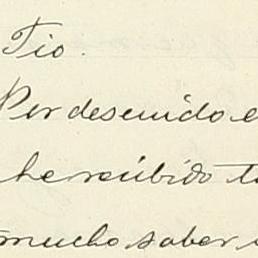 Tio.
Por descuido
he recibido
mucho saber